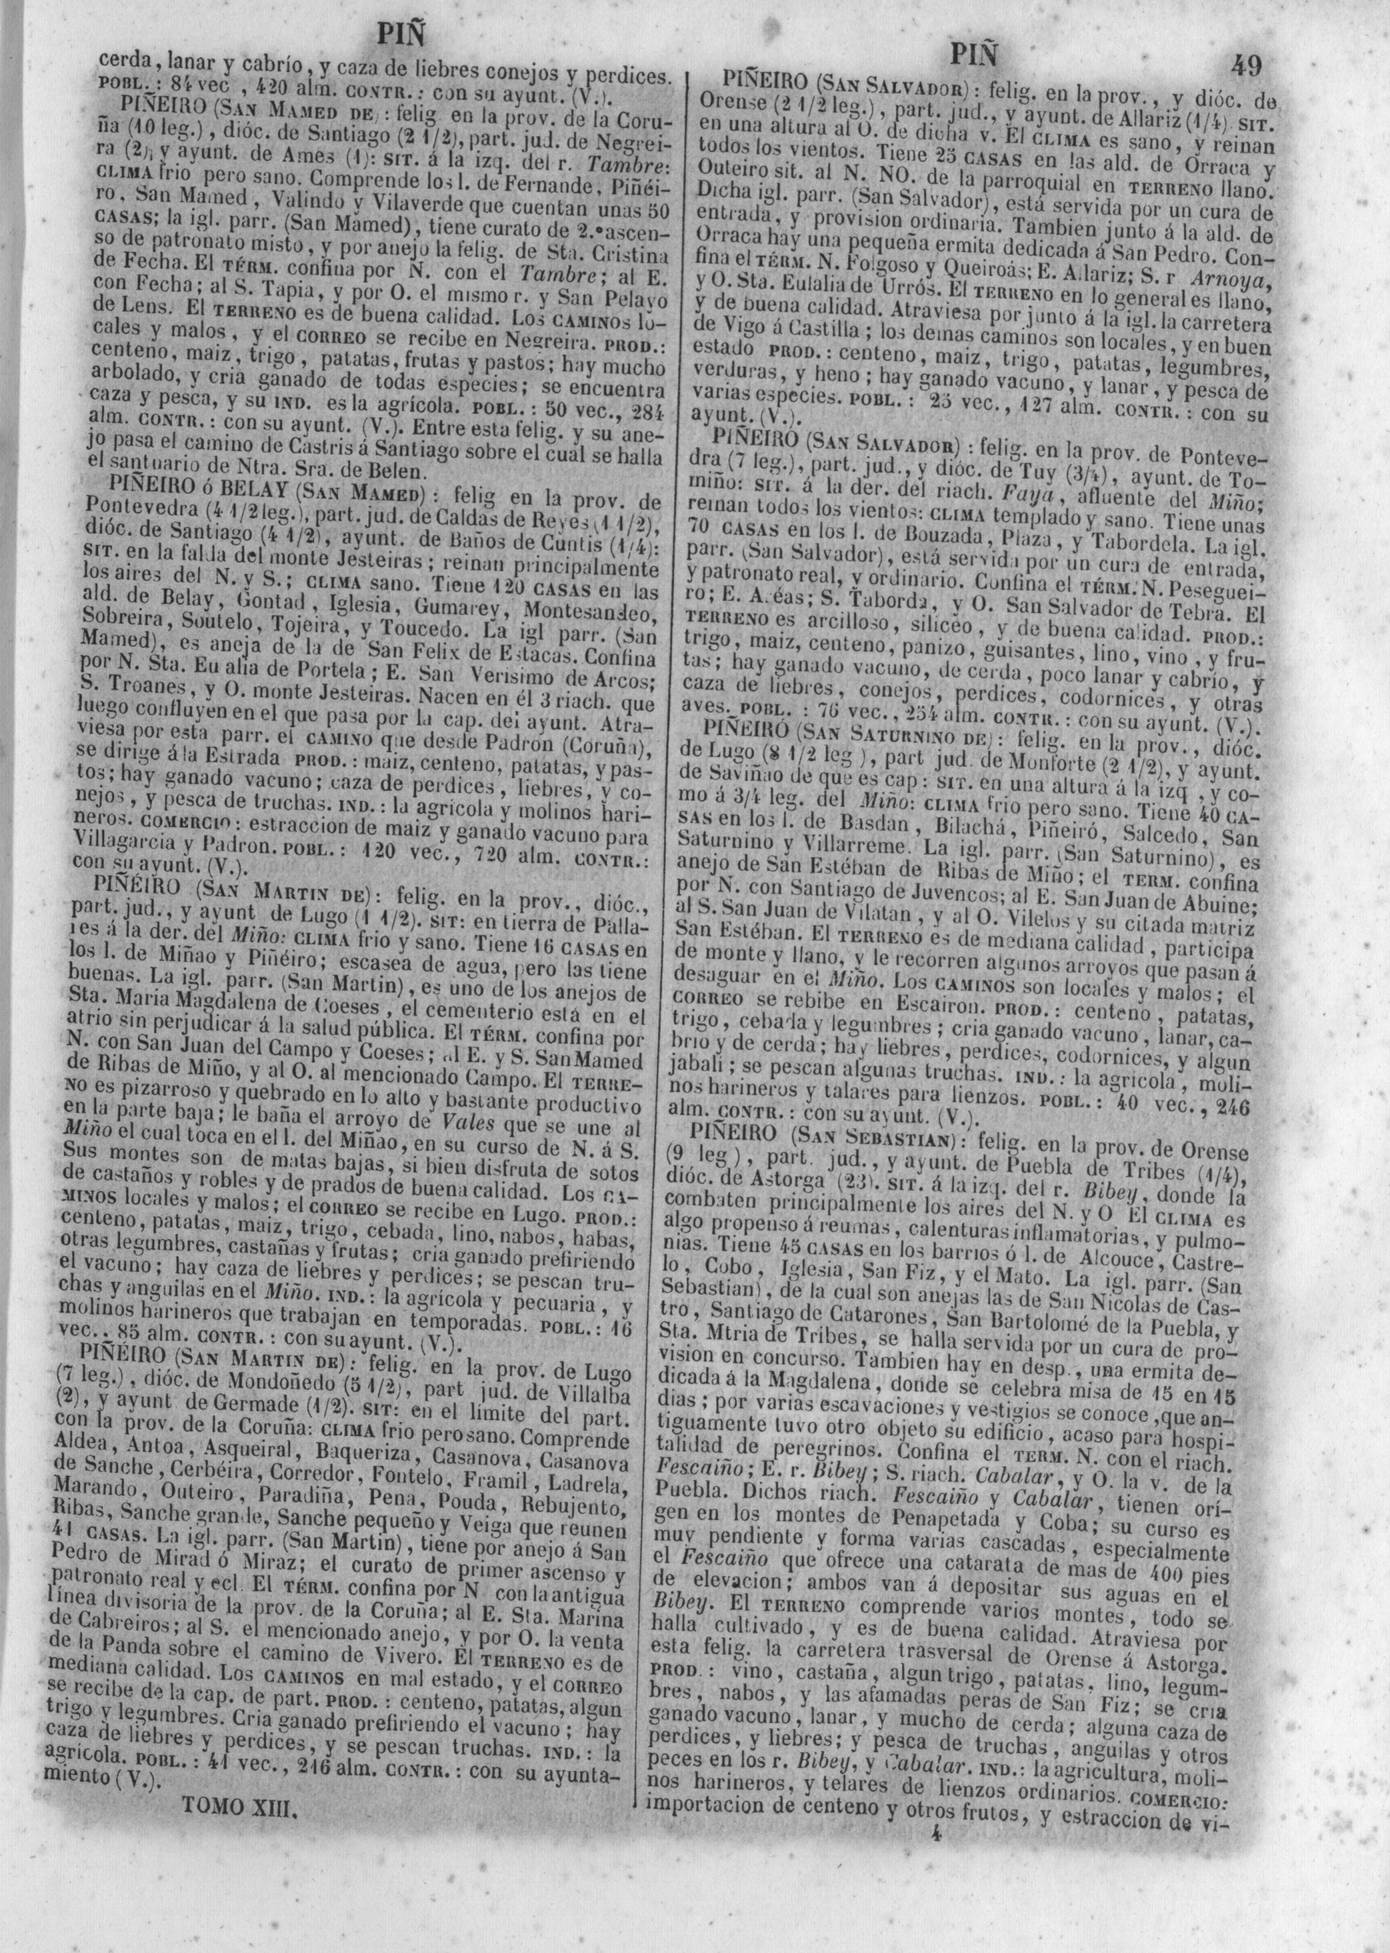 PIÑ
cerda, lanar y cabrío, y caza de liebres conejos y perdices.
POBL.: 84 vec , 420 alm. CONTR.: con su ayunt. (V.).
PIÑEIRO (SAN MAMED DE): felig en la prov. de la Coru-
ña (10 leg.), dióc. de Santiago (2 1/2), part. jud. de Negrei-
ra (2), y ayunt. de Ames (1): SIT. á la izq. del r. Tambre:
CLIMA frio pero sano. Comprende los l. de Fernande, Piñéi-
ro, San Mamed, Valindo y Vilaverde que cuentan unas 50
CASAS; la igl. parr. (San Mamed), tiene curato de 2.º ascen-
so de patronato misto, y por anejo la felig. de Sta. Cristina
de Fecha. El TÉRM. confina por N. con el Tambre; al E.
con Fecha; al S. Tapia, y por O. el mismo r. y San Pelayo
de Lens. El TERRENO es de buena calidad. Los CAMINOS lo-
cales y malos, y el CORREO se recibe en Negreira. PROD.:
centeno, maiz, trigo, patatas, frutas y pastos; hay mucho
arbolado, y cria ganado de todas especies; se encuentra
caza y pesca, y su IND. es la agrícola. POBL.: 50 vec., 284
alm. CONTR.: con su ayunt. (V.). Entre esta felig. y su ane-
jo pasa el camino de Castris á Santiago sobre el cual se halla
el santuario de Ntra. Sra. de Belen.
PIÑEIRO ó BELAY (SAN MAMED): felig en la prov. de
Pontevedra (4 1/2 leg.), part. jud. de Caldas de Reyes (1 1/2),
dióc. de Santiago (4 1/2), ayunt. de Baños de Cuntis (1/4):
SIT. en la falda del monte Jesteiras; reinan principalmente
los aires del N. y S.; CLIMA sano. Tiene 120 CASAS en las
ald. de Belay, Gontad, Iglesia, Gumarey, Montesandeo,
Sobreira, Soutelo, Tojeira, y Toucedo. La igl parr. (San
Mamed), es aneja de la de San Felix de Estacas. Confina
por N. Sta. Eu alia de Portela; E. San Verisimo de Arcos;
S. Troanes, y O. monte Jesteiras. Nacen en él 3 riach. que
luego confluyen en el que pasa por la cap. del ayunt. Atra-
viesa por esta parr. el CAMINO que desde Padron (Coruña),
se dirige á la Estrada PROD.: maiz, centeno, patatas, y pas-
tos; hay ganado vacuno; caza de perdices, liebres, y co-
nejos, y pesca de truchas. IND.: la agricola y molinos hari-
neros. COMERCIO: estraccion de maiz y ganado vacuno para
Villagarcia y Padron. POBL.: 120 vec., 720 alm. CONTR.:
con su ayunt. (V.).
PIÑEIRO (SAN MARTIN DE): felig. en la prov., dióc.,
part. jud., y ayunt de Lugo (1 1/2). SIT: en tierra de Palla-
res á la der. del Miño: CLIMA frio y sano. Tiene 16 CASAS en
los l. de Miñao y Piñéiro; escasea de agua, pero las tiene
buenas. La igl. parr. (San Martin), es uno de los anejos de
Sta. María Magdalena de Coeses, el cementerio está en el
atrio sin perjudicar á la salud pública. El TÉRM. confina por
N. con San Juan del Campo y Coeses; al E. y S. San Mamed
de Ribas de Miño, y al O. al mencionado Campo. El TERRE-
NO es pizarroso y quebrado en lo alto y bastante productivo
en la parte baja; le baña el arroyo de Vales que se une al
Miño el cual toca en el l. del Miñao, en su curso de N. á S.
Sus montes son de matas bajas, si bien disfruta de sotos
de castaños y robles y de prados de buena calidad. Los CA-
MINOS locales y malos; el CORREO se recibe en Lugo. PROD.:
centeno, patatas, maiz, trigo, cebada, lino, nabos, habas,
otras legumbres, castañas y frutas; cria ganado prefiriendo
el vacuno; hay caza de liebres y perdices; se pescan tru-
chas y anguilas en el Miño. IND.: la agrícola y pecuaria, y
molinos harineros que trabajan en temporadas. POBL.: 16
vec., 85 alm. CONTR.: con su ayunt. (V.).
PIÑEIRO (SAN MARTIN DE): felig. en la prov. de Lugo
(7 leg.), dióc. de Mondoñedo (5 1/2), part jud. de Villalba
(2), y ayunt de Germade (1/2). SIT: en el limite del part.
con la prov. de la Coruña: CLIMA frio pero sano. Comprende
Aldea, Antoa, Asqueiral, Baqueriza, Casanova, Casanova
de Sanche, Cerbéira, Corredor, Fontelo, Framil, Ladrela,
Marando, Outeiro, Paradiña, Pena, Pouda, Rebujento,
Ribas, Sanche grande, Sanche pequeño y Veiga que reunen
41 CASAS. La igl. parr. (San Martin), tiene por anejo á San
Pedro de Mirad ó Miraz; el curato de primer ascenso y
patronato real y ecl. El TÉRM. confina por N con la antigua
línea divisoria de la prov. de la Coruña; al E. Sta. Marina
de Cabreiros; al S. el mencionado anejo, y por O. la venta
de la Panda sobre el camino de Vivero. El TERRENO es de
mediana calidad. Los CAMINOS en mal estado, y el CORREO
se recibe de la cap. de part. PROD.: centeno, patatas, algun
trigo y legumbres. Cria ganado prefiriendo el vacuno; hay
caza de liebres y perdices, y se pescan truchas. IND.: la
agrícola. POBL.: 41 vec., 216 alm. CONTR.: con su ayunta-
miento (V.).
TOMO XIII.
PIÑ
49
PIÑEIRO (SAN SALVADOR): felig. en la prov., y dióc. de
Orense (2 1/2 leg.), part. jud., y ayunt. de Allariz (1/4) SIT.
en una altura al O. de dicha v. El CLIMA es sano, y reinan
todos los vientos. Tiene 25 CASAS en las ald. de Orraca y
Outeiro sit. al N. NO. de la parroquial en TERRENO llano.
Dicha igl. parr. (San Salvador), está servida por un cura de
entrada, y provision ordinaria. Tambien junto á la ald. de
Orraca hay una pequeña ermita dedicada á San Pedro. Con-
fina el TÉRM. N. Folgoso y Queiroás; E. Allariz; S. r Arnoya,
y O. Sta. Eulalia de Urrós. El TERRENO en lo general es llano,
y de buena calidad. Atraviesa por junto á la igl. la carretera
de Vigo á Castilla; los demas caminos son locales, y en buen
estado PROD.: centeno, maiz, trigo, patatas, legumbres,
verduras, y heno; hay ganado vacuno, y lanar, y pesca de
varias especies. POBL.: 25 vec., 127 alm. CONTR.: con su
ayunt. (V.).
PIÑEIRO (SAN SALVADOR): felig. en la prov. de Ponteve-
dra (7 leg.), part. jud., y dióc. de Tuy (3/4), ayunt. de To-
miño: SIT. á la der. del riach. Faya, afluente del Miño;
reinan todos los vientos: CLIMA templado y sano. Tiene unas
70 CASAS en los l. de Bouzada, Plaza, y Tabordela. La igl.
parr. (San Salvador), está servida por un cura de entrada,
y patronato real, y ordinario. Confina el TÉRM. N. Peseguei-
ro; E. A. éas; S. Taborda, y O. San Salvador de Tebra. El
TERRENO es arcilloso, siliceo, y de buena calidad. PROD.:
trigo, maiz, centeno, panizo, guisantes, lino, vino, y fru-
tas; hay ganado vacuno, de cerda, poco lanar y cabrío, y
caza de liebres, conejos, perdices, codornices, y otras
aves. POBL.: 76 vec., 254 alm. CONTR.: con su ayunt. (V.).
PIÑEIRO (SAN SATURNINO DE): felig. en la prov., dióc.
de Lugo (8 1/2 leg ), part jud. de Monforte (2 1/2), y ayunt.
de Saviñao de que es cap: SIT. en una altura á la izq , y co-
mo á 3/4 leg. del Miño: CLIMA frio pero sano. Tiene 40 CA-
SAS en los l. de Basdan, Bilachá, Piñeiró, Salcedo, San
Saturnino y Villarreme. La igl. parr. (San Saturnino), es
anejo de San Estéban de Ribas de Miño; el TERM. confina
por N. con Santiago de Juvencos; al E. San Juan de Abuine;
al S. San Juan de Vilatan, y al O. Vilelos y su citada matriz
San Estéban. El TERRENO es de mediana calidad, participa
de monte y llano, y le recorren algunos arroyos que pasan á
desaguar en el Miño. Los CAMINOS son locales y malos; el
CORREO se rebibe en Escairon. PROD.: centeno, patatas,
trigo, cebada y legumbres; cria ganado vacuno, lanar, ca-
brío y de cerda; hay liebres, perdices, codornices, y algun
jabali; se pescan algunas truchas. IND.: la agrícola, moli-
nos harineros y talares para lienzos. POBL.: 40 vec., 246
alm. CONTR.: con su ayunt. (V.).
PIÑEIRO (SAN SEBASTIAN): felig. en la prov. de Orense
(9 leg ), part. jud., y ayunt. de Puebla de Tribes (1/4),
dióc. de Astorga (23). SIT. á la izq. del r. Bibey, donde la
combaten principalmente los aires del N. y O El CLIMA es
algo propenso á reumas, calenturas inflamatorias, y pulmo-
nias. Tiene 45 CASAS en los barrios ó l. de Alcouce, Castre-
lo, Cobo, Iglesia, San Fiz, y el Mato. La igl. parr. (San
Sebastian), de la cual son anejas las de San Nicolas de Cas-
tro, Santiago de Catarones, San Bartolomé de la Puebla, y
Sta. Mtria de Tribes, se halla servida por un cura de pro-
vision en concurso. Tambien hay en desp., una ermita de-
dicada á la Magdalena, donde se celebra misa de 15 en 15
dias; por varias escavaciones y vestigios se conoce ,que an-
tiguamente tuvo otro objeto su edificio, acaso para hospi-
talidad de peregrinos. Confina el TERM. N. con el riach.
Fescaiño; E. r. Bibey; S. riach. Cabalar, y O. la v. de la
Puebla. Dichos riach. Fescaiño y Cabalar, tienen orí-
gen en los montes de Penapetada y Coba; su curso es
muy pendiente y forma varias cascadas, especialmente
el Fescaiño que ofrece una catarata de mas de 400 pies
de elevacion; ambos van á depositar sus aguas en el
Bibey. El TERRENO comprende varios montes, todo se
halla cultivado, y es de buena calidad. Atraviesa por
esta felig. la carretera trasversal de Orense á Astorga.
PROD.: vino, castaña, algun trigo, patatas, lino, legum-
bres, nabos, y las afamadas peras de San Fiz; se cria
ganado vacuno, lanar, y mucho de cerda; alguna caza de
perdices, y liebres; y pesca de truchas, anguilas y otros
peces en los r. Bibey, y Cabalar. IND.: la agricultura, moli-
nos harineros, y telares de lienzos ordinarios. COMERCIO:
importacion de centeno y otros frutos, y estraccion de vi-
4